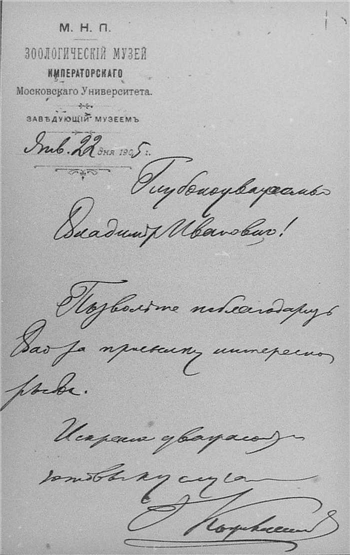 М. Н. П.
ЗООЛОГИЧЕСКІЙ МУЗЕЙ
ИМПЕРАТОРСКАГО
Московскаго Университета.
ЗАВѢДУЮЩІЙ МУЗЕЕМЪ.
Янв. 22 дня 1905 г.
Глубокоуважаемый
Владимір Иванович!
Позвольте поблагодарить
Вас за присылку интересной
рыбы.
Искренно уважающій
готовый к услугам